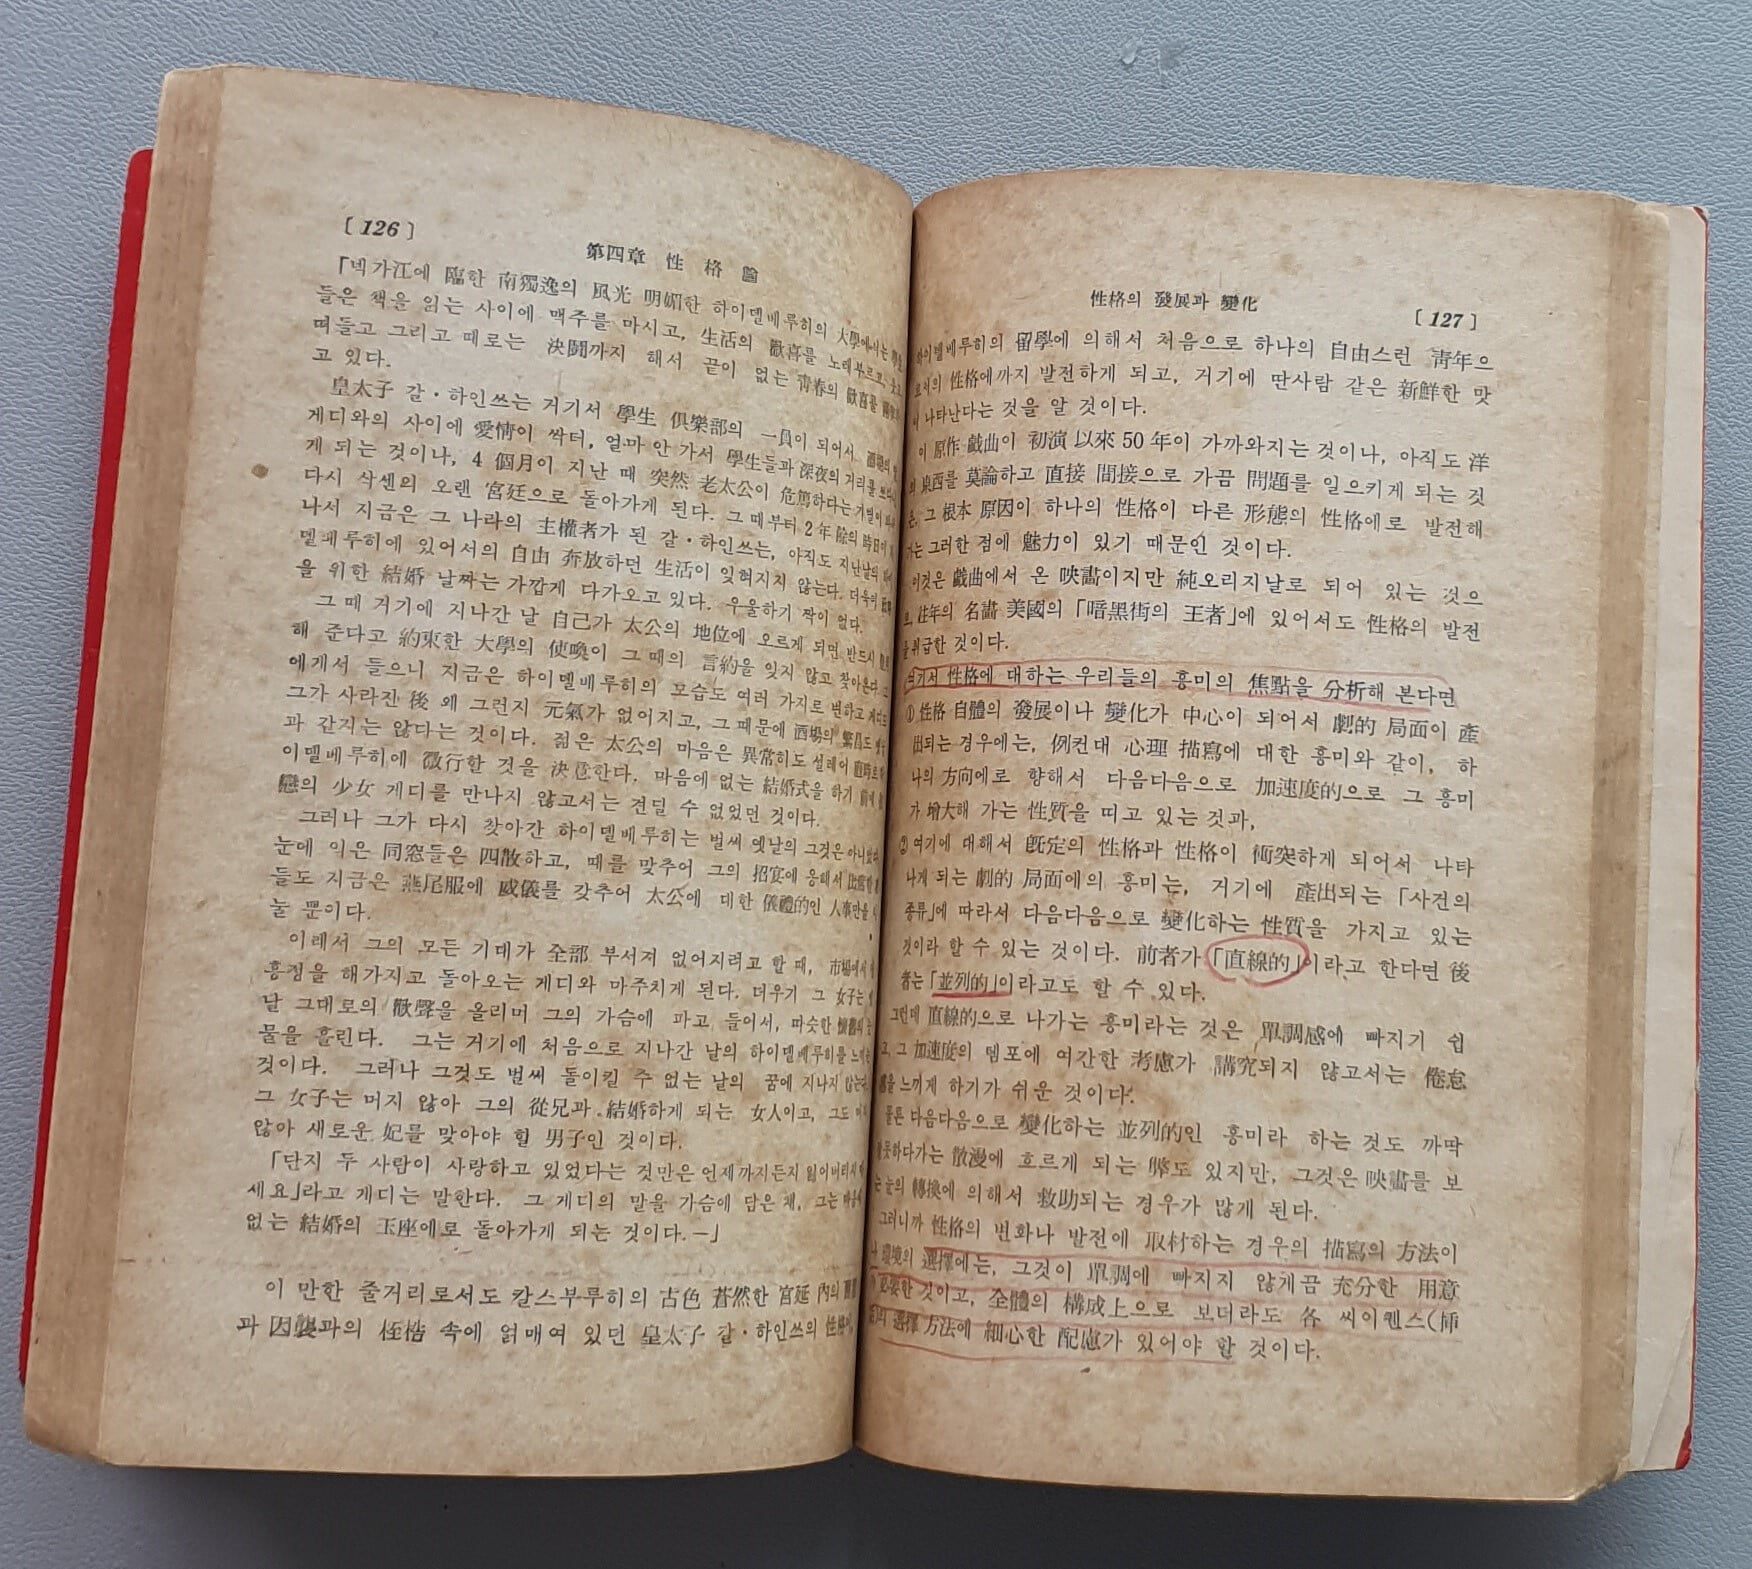 [ 126 ]
第四章 性 格 論
「넥가江에 臨한 南獨逸의 風光 明媚한 하이델베루히의 大學에서는
들은 책을 읽는 사이에 맥주를 마시고, 生活의 歡喜를 노래부르고,
떠들고 그리고 때로는 決鬪까지 해서 끝이 없는 靑春의 歡喜를
고 있다.
皇太子 갈·하인쓰는 거기서 學生 俱樂部의 一員이 되어서 酒場의
게디와의 사이에 愛情이 싹터, 얼마 안 가서 學生들과 深夜의 거리를
게 되는 것이나, 4 個月이 지난 때 突然 老太公이 危篤하다는 기별이
다시 삭센의 오랜 宮廷으로 돌아가게 된다. 그 때부터 2年 餘의 時日이
나서 지금은 그 나라의 主權者가 된 갈·하인쓰는, 아직도 지난날의
델베루히에 있어서의 自由 奔放하던 生活이 잊혀지지 않는다. 더욱이
을 위한 結婚 날짜는 가깝게 다가오고 있다. 우울하기 짝이 없다.
그 때 거기에 지나간 날 自己가 太公의 地位에 오르게 되면 반드시
해 준다고 約束한 大學의 使喚이 그 때의 言約을 잊지 않고 찾아온다.
에게서 들으니 지금은 하이델베루히의 모습도 여러 가지로 변하고
그가 사라진 後 왜 그런지 元氣가 없어지고, 그 때문에 酒場의 繁昌도
과 같지는 않다는 것이다. 젊은 太公의 마음은 異常히도 설레어
이델베루히에 微行할 것을 決意한다. 마음에 없는 結婚式을 하기 前에
戀의 少女 게디를 만나지 않고서는 견딜 수 없었던 것이다.
그러나 그가 다시 찾아간 하이델베루히는 벌써 옛날의 그것은 아니었다.
눈에 익은 同窓들은 四散하고, 때를 맞추어 그의 招宴에 응해서
들도 지금은 燕尾服에 威儀를 갖추어 太公에 대한 儀禮的인 人事만을
눌 뿐이다.
이래서 그의 모든 기대가 全部 부서져 없어지려고 할 때, 市場에서
흥정을 해가지고 돌아오는 게디와 마주치게 된다. 더우기 그 女子는
날 그대로의 歡聲을 올리며 그의 가슴에 파고 들어서, 따숫한 懷舊의
물을 흘린다. 그는 거기에 처음으로 지나간 날의 하이델베루히를
것이다. 그러나 그것도 벌써 돌이킬 수 없는 날의 꿈에 지나지 않는다.
그 女子는 머지 않아 그의 從兄과 結婚하게 되는 女人이고, 그도
않아 새로운 妃를 맞아야 헐 男子인 것이다.
「단지 두 사람이 사랑하고 있었다는 것만은 언제까지든지 잃어버리지
세요」라고 게디는 말한다. 그 게디의 말을 가슴에 담은 채, 그는 마음에
없는 結婚의 玉座에로 돌아가게 되는 것이다.—」
이 만한 줄거리로서도 칼스부루히의 古色 蒼然한 宮延 內의
과 因襲과의 桎梏 속에 얽매여 있던 皇太子 갈·하인쓰의 性格이,
性格의 發展과 變化
[ 127 ]
하이델베루히의 留學에 의해서 처음으로 하나의 自由스런 靑年으
로서의 性格에까지 발전하게 되고, 거기에 딴사람 같은 新鮮한 맛
이 나타난다는 것을 알 것이다.
이 原作 戱曲이 初演 以來 50年이 가까와지는 것이나, 아직도 洋
의 東西를 莫論하고 直接 間接으로 가끔 問題를 일으키게 되는 것
은, 그 根本 原因이 하나의 性格이 다른 形態의 性格에로 발전해
가는 그러한 점에 魅力이 있기 때문인 것이다.
이것은 戱曲에서 온 映畵이지만 純오리지날로 되어 있는 것으
로, 往年의 名畵 美國의 「暗黑街의 王者」에 있어서도 性格의 발전
을 취급한 것이다.
여기서 性格에 대하는 우리들의 흥미의 焦點을 分析해 본다면
① 性格 自體의 發展이나 變化가 中心이 되어서 劇的 局面이 產
出되는 경우에는, 例컨대 心理 描寫에 대한 흥미와 같이, 하
나의 方向에로 향해서 다음다음으로 加速度的으로 그 흥미
가 增大해 가는 性質을 띠고 있는 것과,
② 여기에 대해서 旣定의 性格과 性格이 衝突하게 되어서 나타
나게 되는 劇的 局面에의 흥미는, 거기에 產出되는 「사건의
종류」에 따라서 다음다음으로 變化하는 性質을 가지고 있는
것이라 할 수 있는 것이다. 前者가 「直線的」이라고 한다면 後
者는 「並列的」이라고도 할 수 있다.
그런데 直線的으로 나가는 흥미라는 것은 單調感에 빠지기 쉽
고, 그 加速度의 템포에 여간한 考慮가 講究되지 않고서는 倦怠
을 느끼게 하기가 쉬운 것이다.
물론 다음다음으로 變化하는 並列的인 흥미라 하는 것도 까딱
잘못하다가는 散漫에 흐르게 되는 弊도 있지만, 그것은 映畵를 보
는 눈의 轉換에 의해서 救助되는 경우가 많게 된다.
그러니까 性格의 변화나 발전에 取材하는 경우의 描寫의 方法이
나 環境의 選擇에는, 그것이 單調에 빠지지 않게끔 充分한 用意
가 必要한 것이고, 全體의 構成上으로 보더라도 各 씨이켄스(揷
話)의 選擇 方法에 細心한 配慮가 있어야 할 것이다.